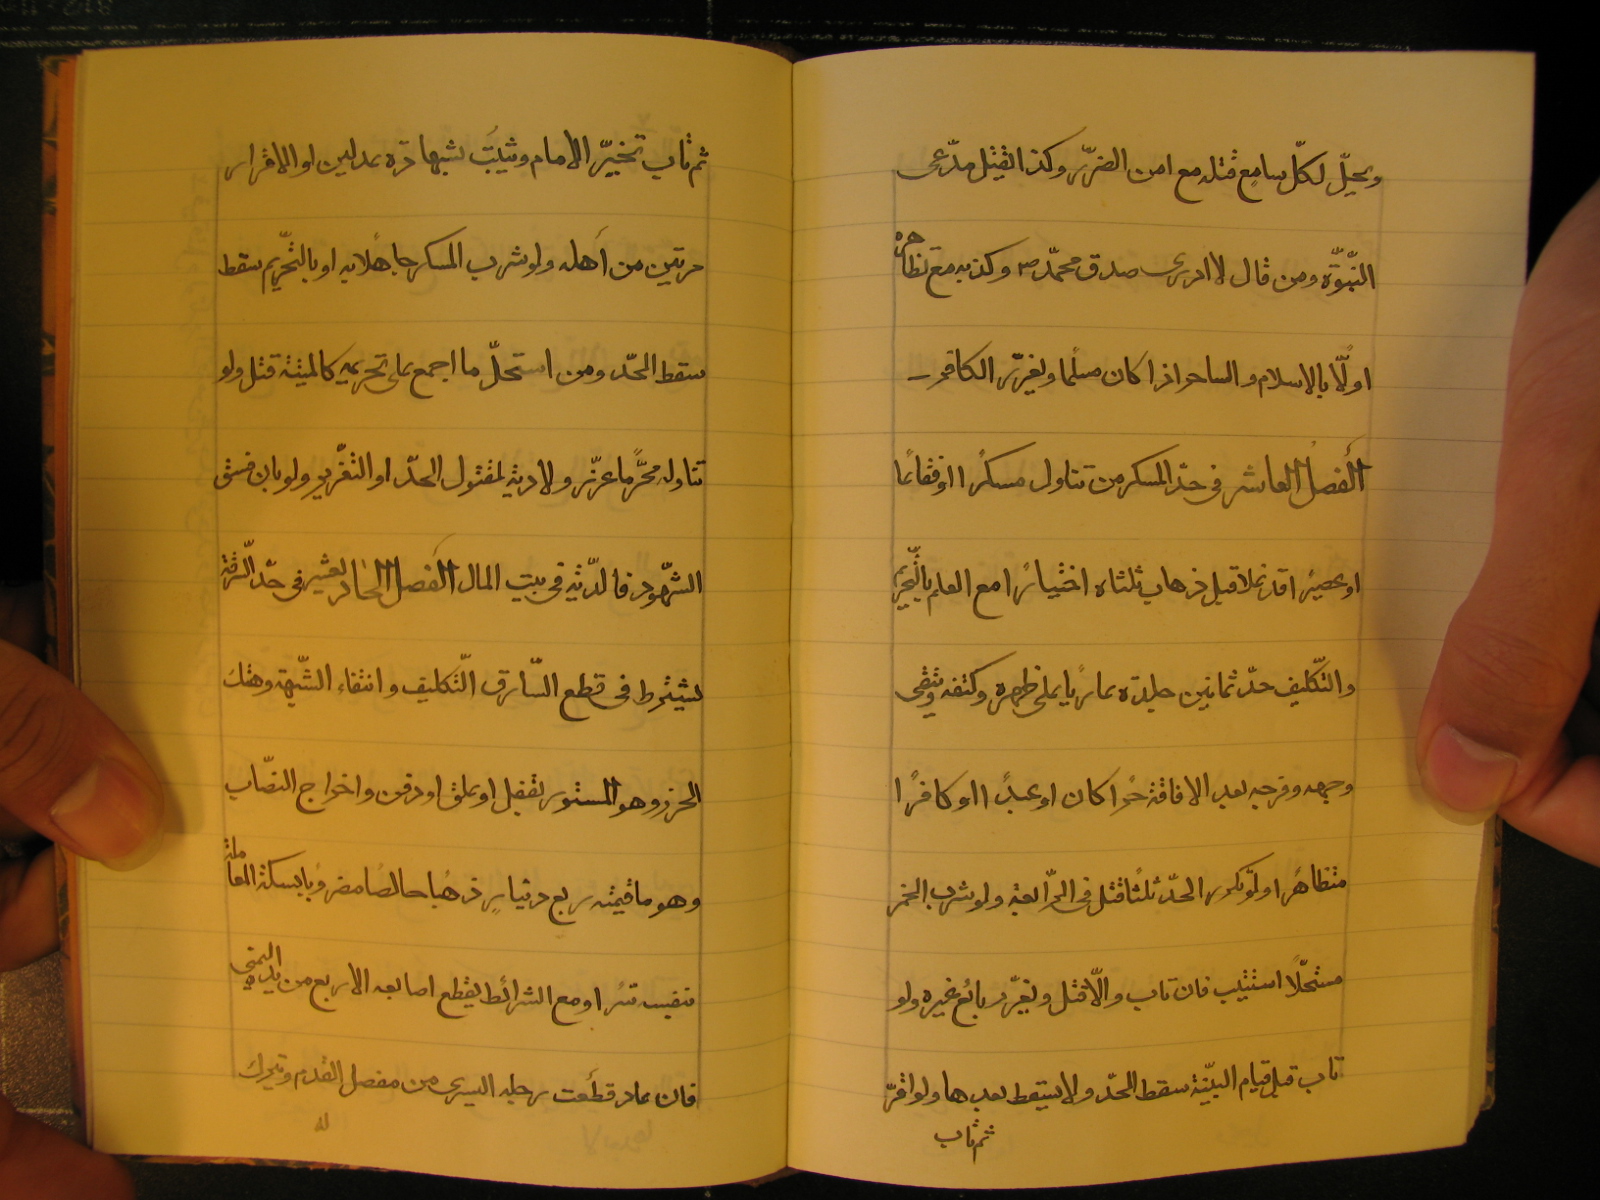 ويحلّ لكلّ سامع قتله مع امن الضرّر وكذا يقتل مدّعى
النّبوّة ومن قال لا ادرى صدق محمّد ص وكذبه مع تظاهره
اوّلًا بالاسلام والساحر اذا كان مسلمًا ويعزّر الكافر
الفصل العاشر فى حدّ المسكر من تناول مسكرًا او فقاعًا
او عصيرًا قد غلا قبل ذهاب ثلثاه اختيارًا مع العلم بالتّحريم
والتّكليف حدّ ثمانين جلدة عاريا على ظهره وكتفه ويتقى
وجهه وفرجه بعد الافاقة حرًا كان او عبدًا او كافرًا
متظاهرًا ولو تكرر الحدّ ثلثًا قتل فى الرّابعة ولو شرب الخمر
مستحلًّا استتيب فان تاب والّا قتل ويعزّر بائع غيره ولو
تاب قبل قيام البيّنة سقط الحدّ ولا يسقط بعدها ولو اقرّ
ثم تاب
ثم تاب تخيّر الامام ويثبت بشهادة عدلين او الاقرار
مرتين من أهله ولو شرب المسكر جاهلًا به او بالتّحريم سقط
سقط الحدّ ومن استحلّ ما اجمع على تحريمه كالميتة قتل ولو
تناوله محرّمًا عزّر ولا دية لمقتول الحدّ او التعزير ولو بان فسق
الشّهود فالدّية فى بيت المال الفصل الحادى عشر فى حدّ السّرقة
يشترط فى قطع السّارق التّكليف وانتفاء الشّبهة وهتك
الحرز وهو المستور بقفل او غلق او دفن واخراج النصّاب
وهو ما قيمته ربع دينارٍ ذهبًا خالصًا مضروبًا بسكة المعاملة
بنفسه سرًا ومع الشرائط يقطع اصابعه الاربع من يده اليمنى
فان عاد قطعت رجله اليسرى من مفصل القدم ويترك
له